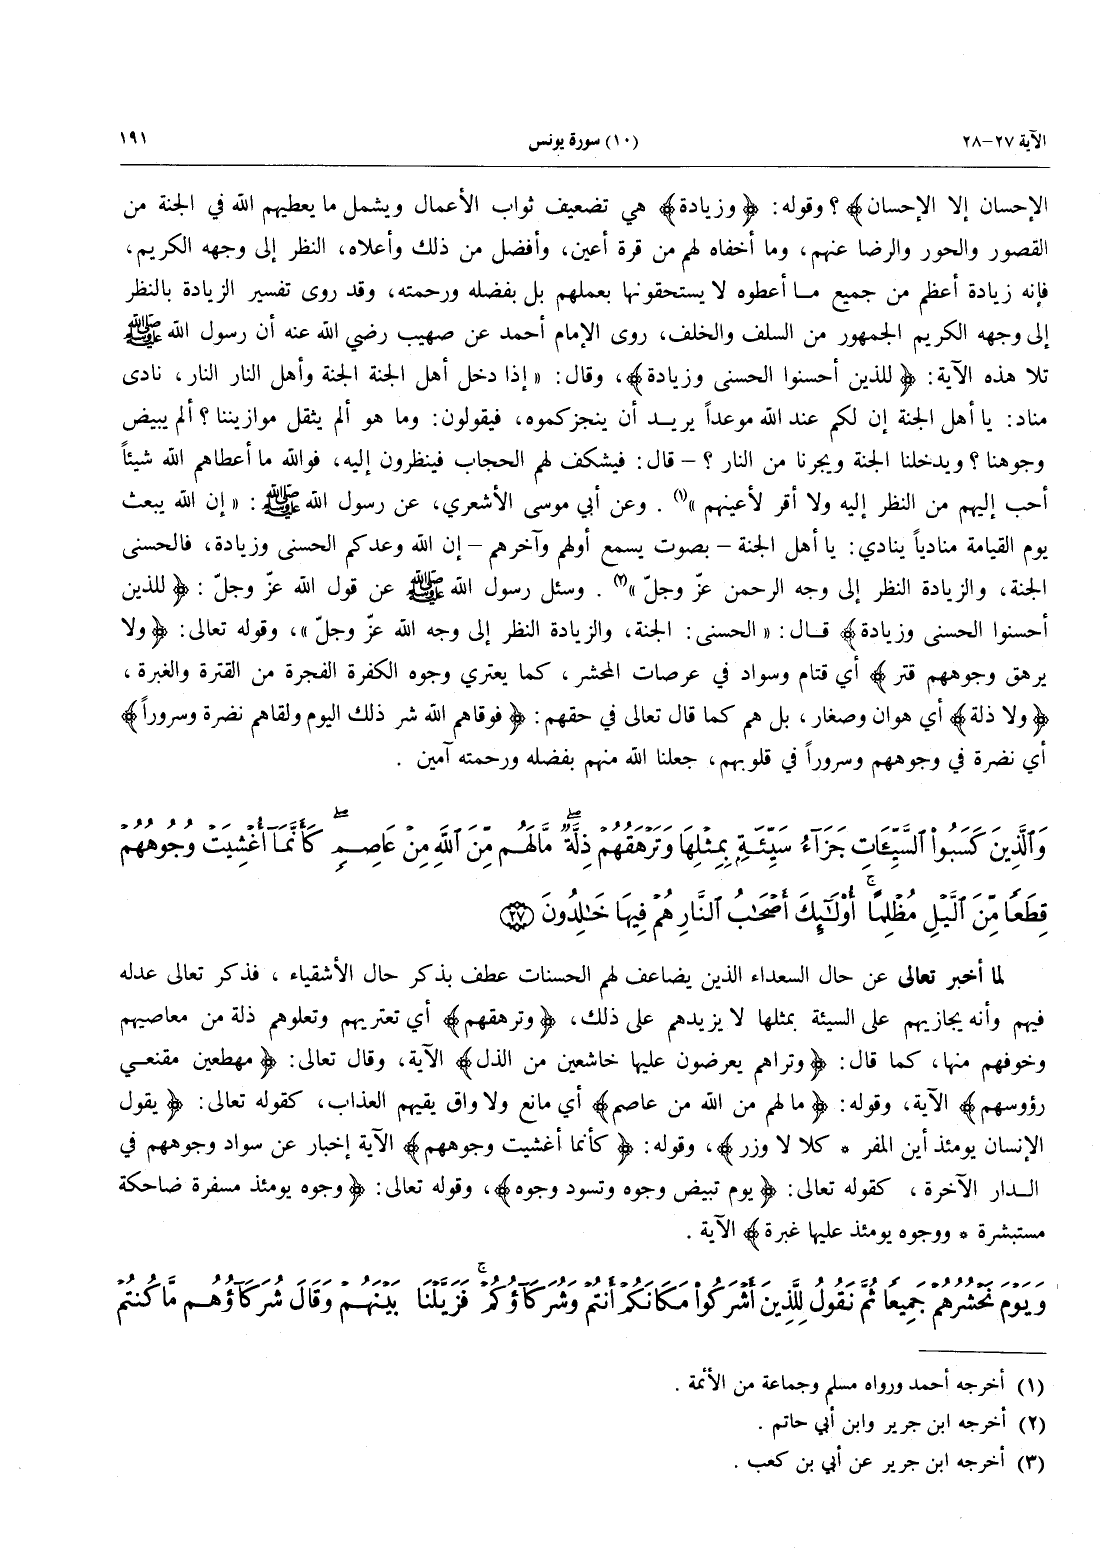 الآية ٢٧-٢٨ (١٠) سورة يونس ١٩١
الإحسان إلا الإحسان﴾ ؟ وقوله: ﴿وزيادة﴾ هي تضعيف ثواب الأعمال ويشمل ما يعطيهم الله في الجنة من
القصور والحور والرضا عنهم، وما أخفاه لهم من قرة أعين، وأفضل من ذلك وأعلاه، النظر إلى وجهه الكريم،
فإنه زيادة أعظم من جميع مـا أعطوه لا يستحقونها بعملهم بل بفضله ورحمته، وقد روى تفسير الزيادة بالنظر
إلى وجهه الكريم الجمهور من السلف والخلف، روى الإمام أحمد عن صهيب رضي الله عنه أن رسول الله ﷺ
تلا هذه الآية: ﴿للذين أحسنوا الحسنى وزيادة﴾، وقال: «إذا دخل أهل الجنة الجنة وأهل النار النار، نادى
مناد: يا أهل الجنة إن لكم عند الله موعداً يريـد أن ينجزكموه، فيقولون: وما هو ألم يثقل موازيننا؟ ألم يبيض
وجوهنا؟ ويدخلنا الجنة ويجرنا من النار؟ - قال: فيشكف لهم الحجاب فينظرون إليه، فوالله ما أعطاهم الله شيئاً
أحب إليهم من النظر إليه ولا أقر لأعينهم»(١) . وعن أبي موسى الأشعري، عن رسول الله ﷺ: «إن الله يبعث
يوم القيامة منادياً ينادي: يا أهل الجنة - بصوت يسمع أولهم وآخرهم - إن الله وعدكم الحسنى وزيادة، فالحسنى
الجنة، والزيادة النظر إلى وجه الرحمن عزّ وجلّ»(٢) . وسئل رسول الله ﷺ عن قول الله عزّ وجلّ: ﴿للذين
أحسنوا الحسنى وزيادة﴾ قـال: «الحسنى: الجنة، والزيادة النظر إلى وجه الله عزّ وجلّ»، وقوله تعالى: ﴿ولا
يرهق وجوههم قتر﴾ أي قتام وسواد في عرصات المحشر، كما يعتري وجوه الكفرة الفجرة من القترة والغبرة،
﴿ولا ذلة﴾ أي هوان وصغار، بل هم كما قال تعالى في حقهم: ﴿فوقاهم الله شر ذلك اليوم ولقاهم نضرة وسروراً﴾
أي نضرة في وجوههم وسروراً في قلوبهم، جعلنا الله منهم بفضله ورحمته آمين .
وَٱلَّذِينَ كَسَبُوا۟ ٱلسَّيِّـَٔاتِ جَزَآءُ سَيِّئَةٍۭ بِمِثْلِهَا وَتَرْهَقُهُمْ ذِلَّةٌۖ مَّا لَهُم مِّنَ ٱللَّهِ مِنْ عَاصِمٍۖ كَأَنَّمَآ أُغْشِيَتْ وُجُوهُهُمْ
قِطَعًا مِّنَ ٱلَّيْلِ مُظْلِمًاۚ أُو۟لَـٰٓئِكَ أَصْحَـٰبُ ٱلنَّارِ هُمْ فِيهَا خَـٰلِدُونَ ﴿٢٧﴾
لما أخبر تعالى عن حال السعداء الذين يضاعف لهم الحسنات عطف بذكر حال الأشقياء، فذكر تعالى عدله
فيهم وأنه يجازيهم على السيئة بمثلها لا يزيدهم على ذلك، ﴿وترهقهم﴾ أي تعتريهم وتعلوهم ذلة من معاصيهم
وخوفهم منها، كما قال: ﴿وتراهم يعرضون عليها خاشعين من الذل﴾ الآية، وقال تعالى: ﴿مهطعين مقنعي
رؤوسهم﴾ الآية، وقوله: ﴿ما لهم من الله من عاصم﴾ أي مانع ولا واق يقيهم العذاب، كقوله تعالى: ﴿يقول
الإنسان يومئذ أين المفر * كلا لا وزر﴾، وقوله: ﴿كأنما أغشيت وجوههم﴾ الآية إخبار عن سواد وجوههم في
الـدار الآخرة، كقوله تعالى: ﴿يوم تبيض وجوه وتسود وجوه﴾، وقوله تعالى: ﴿وجوه يومئذ مسفرة ضاحكة
مستبشرة * ووجوه يومئذ عليها غبرة﴾ الآية .
وَيَوْمَ نَحْشُرُهُمْ جَمِيعًا ثُمَّ نَقُولُ لِلَّذِينَ أَشْرَكُوا۟ مَكَانَكُمْ أَنتُمْ وَشُرَكَآؤُكُمْۚ فَزَيَّلْنَا بَيْنَهُمْ وَقَالَ شُرَكَآؤُهُم مَّا كُنتُمْ
(١) أخرجه أحمد ورواه مسلم وجماعة من الأئمة .
(٢) أخرجه ابن جرير وابن أبي حاتم .
(٣) أخرجه ابن جرير عن أبي بن كعب .